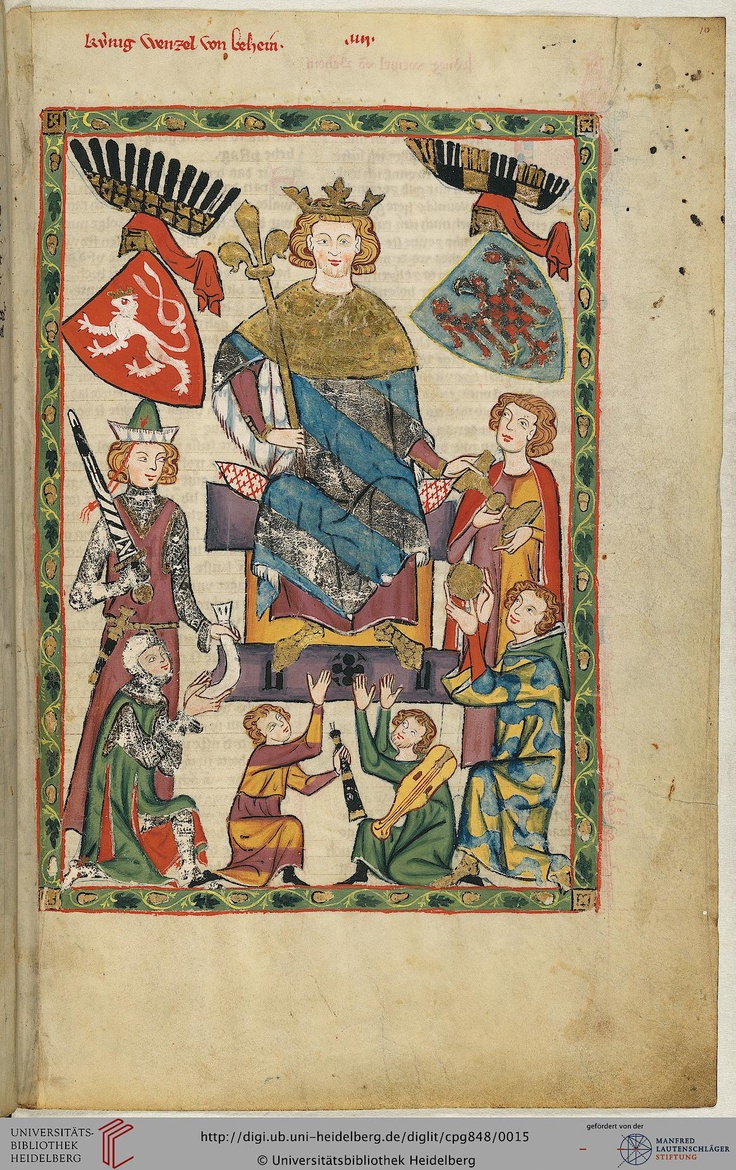 kúnig wenzel von behein. .iiij.
10
UNIVERSITÄTS-
BIBLIOTHEK
HEIDELBERG
http://digi.ub.uni-heidelberg.de/diglit/cpg848/0015
© Universitätsbibliothek Heidelberg
gefördert von der
MANFRED
LAUTENSCHLÄGER
STIFTUNG